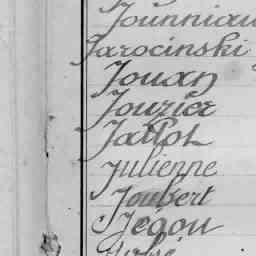 Jounniau
Jarocinski
Jouan
Jouzier
Jallot
Julienne
Joubert
Jégou